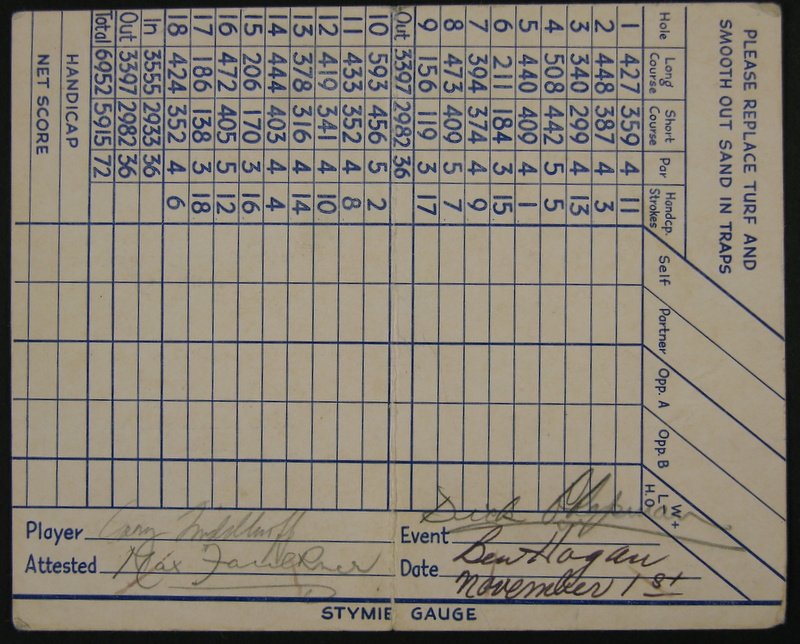 PLEASE REPLACE TURF AND
SMOOTH OUT SAND IN TRAPS
Hole Long Course Short Course Par Handcp. Strokes Self Partner Opp. A Opp. B W+ L- H.O
1 427 359 4 11
2 448 387 4 3
3 340 299 4 13
4 508 442 5 5
5 440 409 4 1
6 211 184 3 15
7 394 374 4 9
8 473 409 5 7
9 156 119 3 17
Out 3397 2982 36
10 593 456 5 2
11 433 352 4 8
12 419 341 4 10
13 378 316 4 14
14 444 403 4 4
15 206 170 3 16
16 472 405 5 12
17 186 138 3 18
18 424 352 4 6
In 3555 2933 36
Out 3397 2982 36
Total 6952 5915 72
HANDICAP
NET SCORE
Player Cary Middlecoff
Attested Max Faulkner
Dick Chapman
Event
Ben Hogan
Date November 1st
STYMIE GAUGE